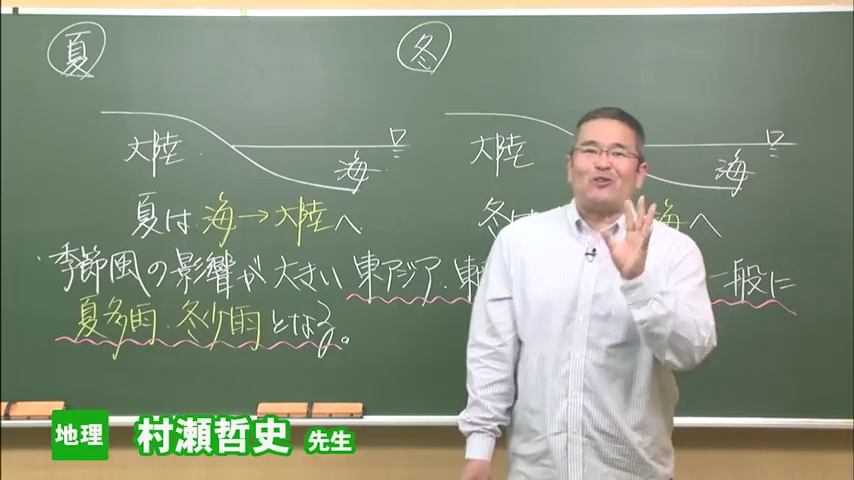 夏
冬
大陸
海
大陸
海
夏は 海→大陸へ
冬は 海へ
季節風の影響が 大きい 東アジア・東 一般に
夏多雨・冬少雨となる。
地理 村瀬哲史 先生